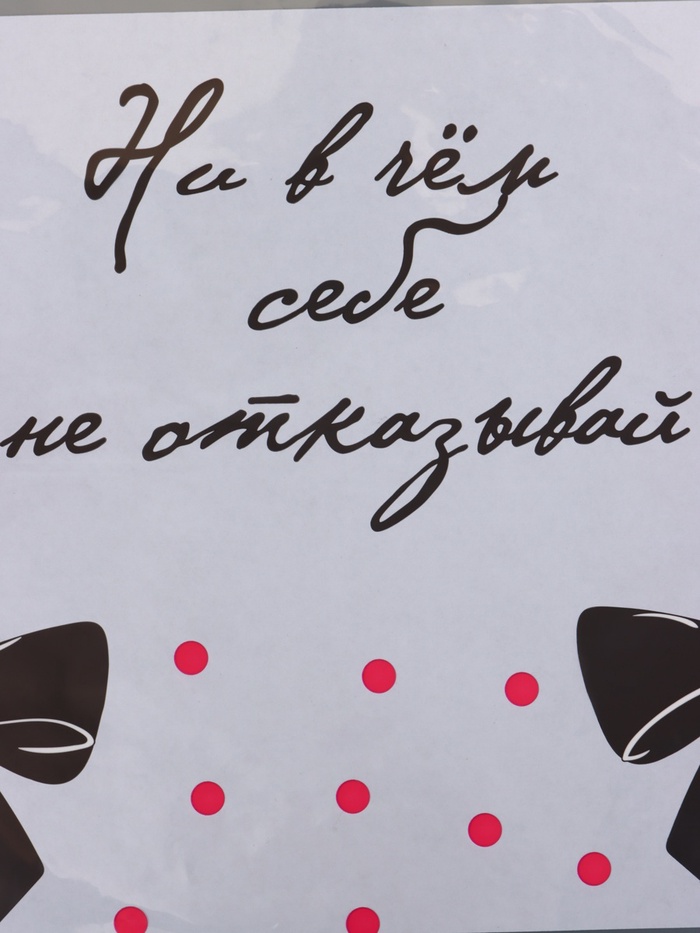 Ни в чём
себе
не отказывай